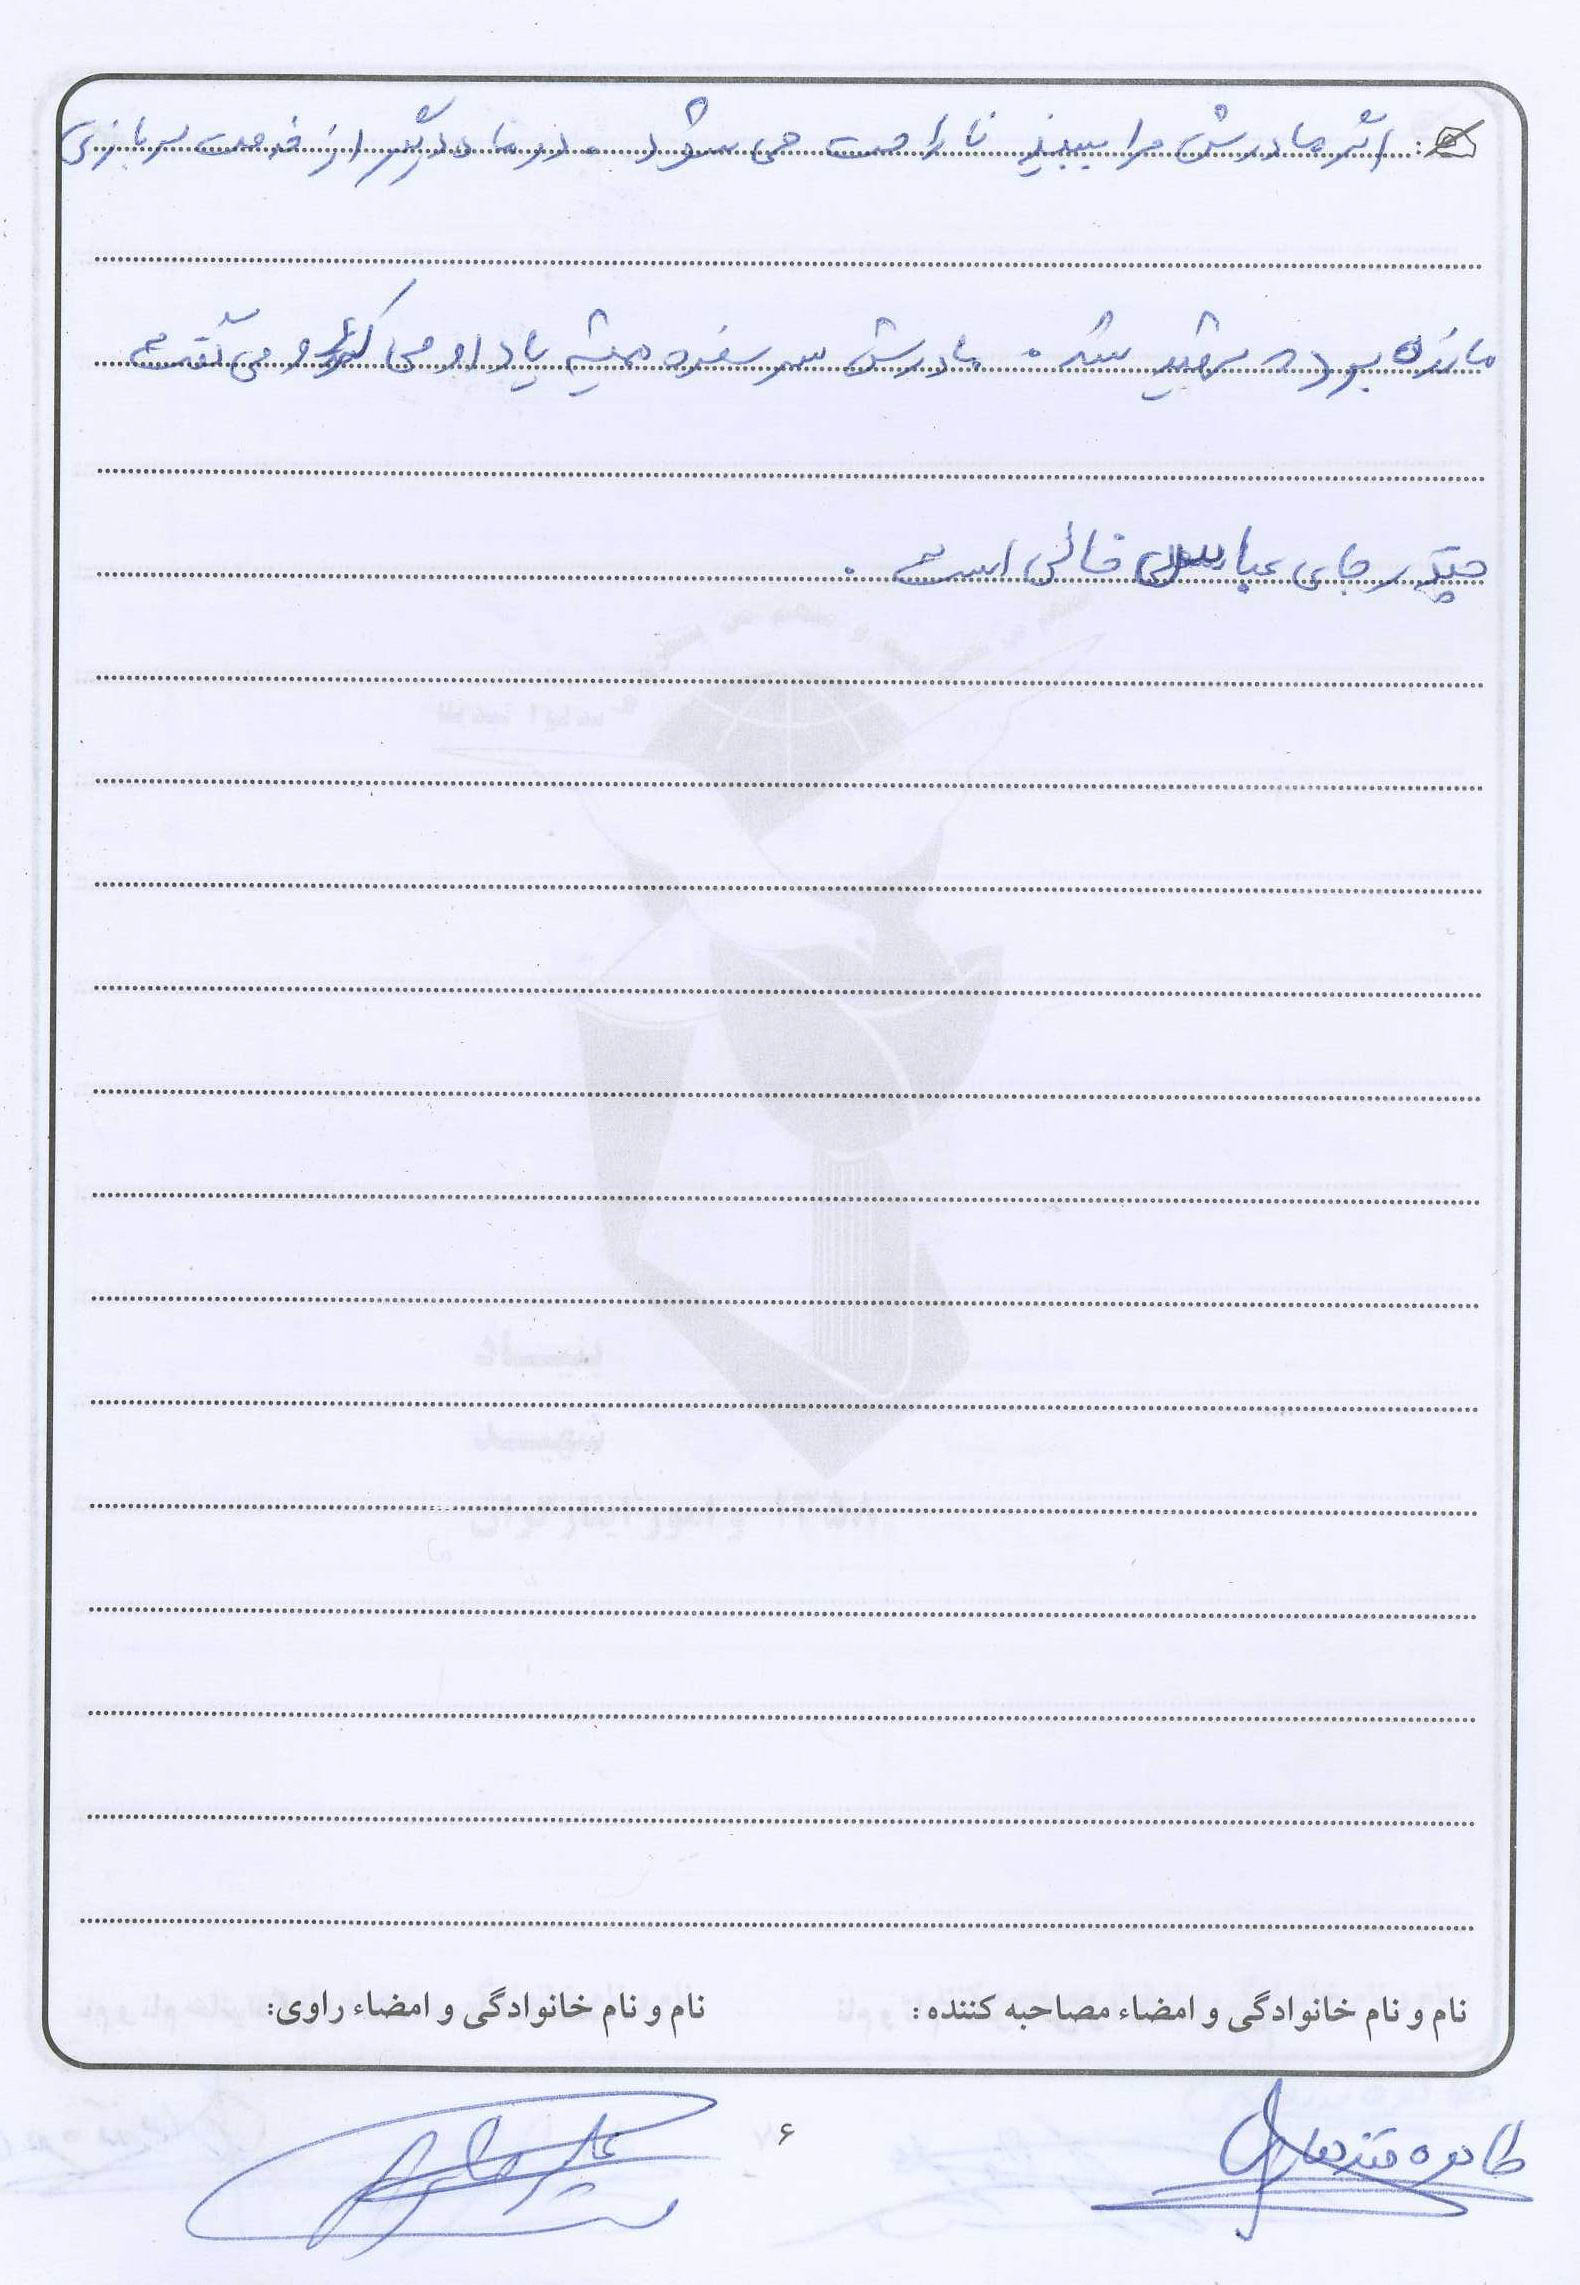 اگر مادرش مرا ببیند ناراحت می شود . دو ماه دیگر از خدمت سربازی
مانده بود که شهید شد . مادرش سر سفره همیشه یاد او می کند و می گفت
چقدر جای عباس خالی است .
نام و نام خانوادگی و امضاء مصاحبه کننده :
نام و نام خانوادگی و امضاء راوی:
طاهره
۶